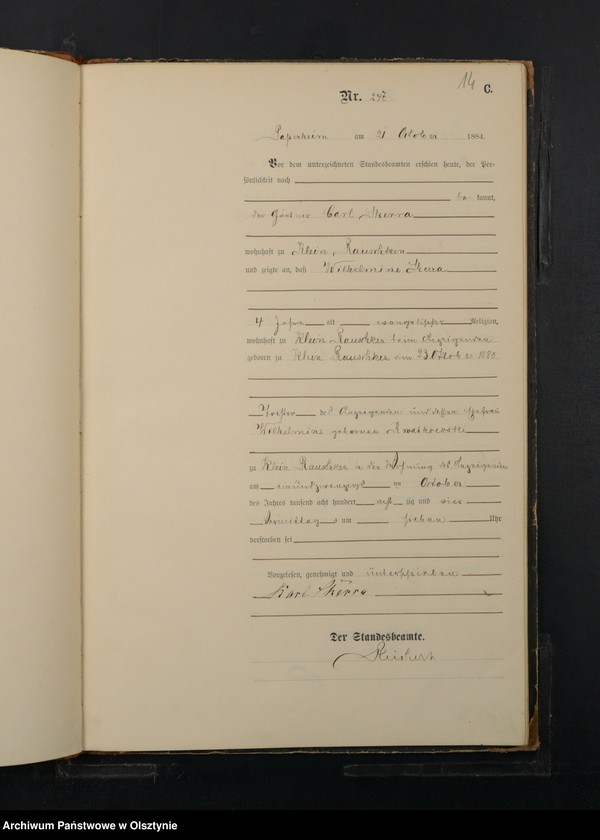 14 C.
Nr. 247
am 21 October 1884.
Vor dem unterzeichneten Standesbeamten erschien heute, der Per-
sönlichkeit nach
be kannt,
der Carl Skerra
wohnhaft zu Klein Rauschken
und zeigte an, daß Wilhelmine Skerra
4 Jahre alt evangelischer Religion,
wohnhaft zu Klein Rauschken beim Anzeigenden
geboren zu Klein Rauschken am 23. October 1880
Tochter des Anzeigenden und dessen Ehefrau
Wilhelmine geborenen
zu Klein Rauschken in der Wohnung des Anzeigenden
am einundzwanzigsten October
des Jahres tausend acht hundert acht zig und vier
Vormittag s um Uhr
verstorben sei
Vorgelesen, genehmigt und unterschrieben
Karl Skerra
Der Standesbeamte.
Archiwum Państwowe w Olsztynie